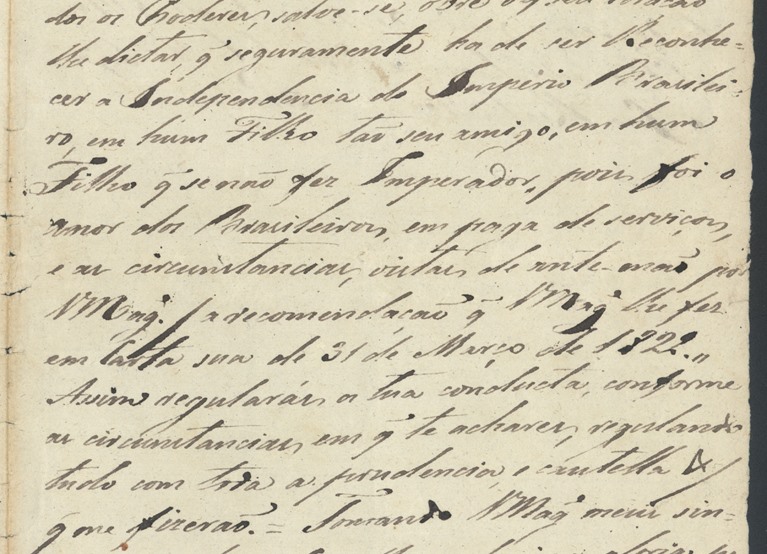 dos os Poderes, salve-se, obre o q̃ seu coração
lhe dictar, q̃ seguramente ha de ser Reconhe=
cer a Independencia do Imperio Brasilei-
ro, em hum Filho tão seu amigo, em hum
Filho q̃ se não fez Imperador, pois foi o
amor dos Brasileiros, em paga de serviços,
e as circunstancias, vistas de ante-mão por
VMag.e / a recomendação q̃ VMag.e lhe fez
em Carta sua de 31 de Março de 1822 „
Assim regularás a tua conducta, conforme
as circunstancias em q̃ te achares, regulando
tudo com toda a prudencia, e cautella &/
q̃ me fizerão. = Tomando VMag.e meus sin-